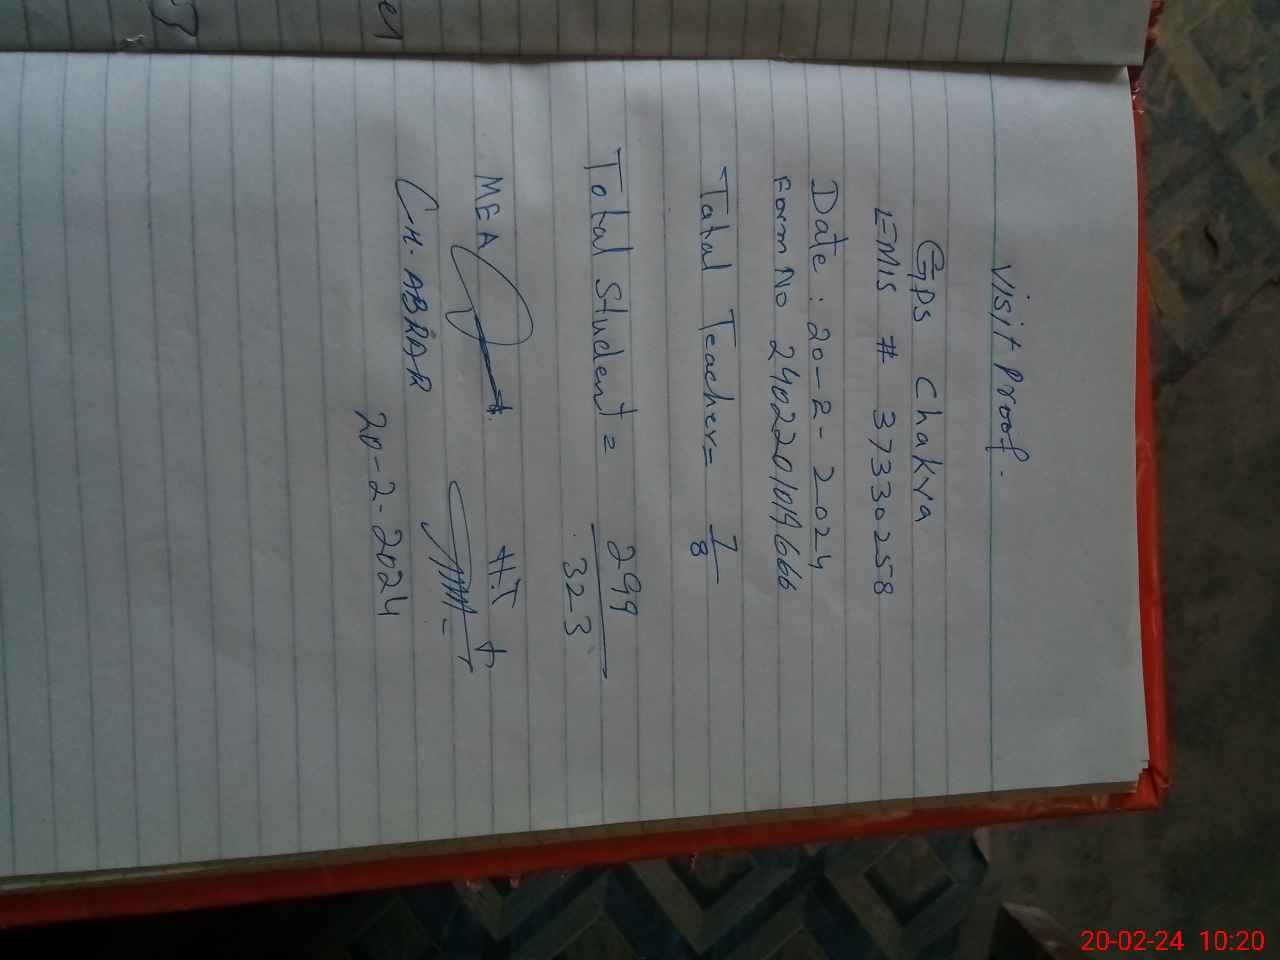 Visit Proof.
GPS Chakra
EMIS # 37330258
Date : 20-2-2024
Form No 2402201019666
Tatal Teacher = 7
8
Total Student = 299
323
MEA
H.T
CH. ABRAR
20-2-2024
20-02-24 10:20